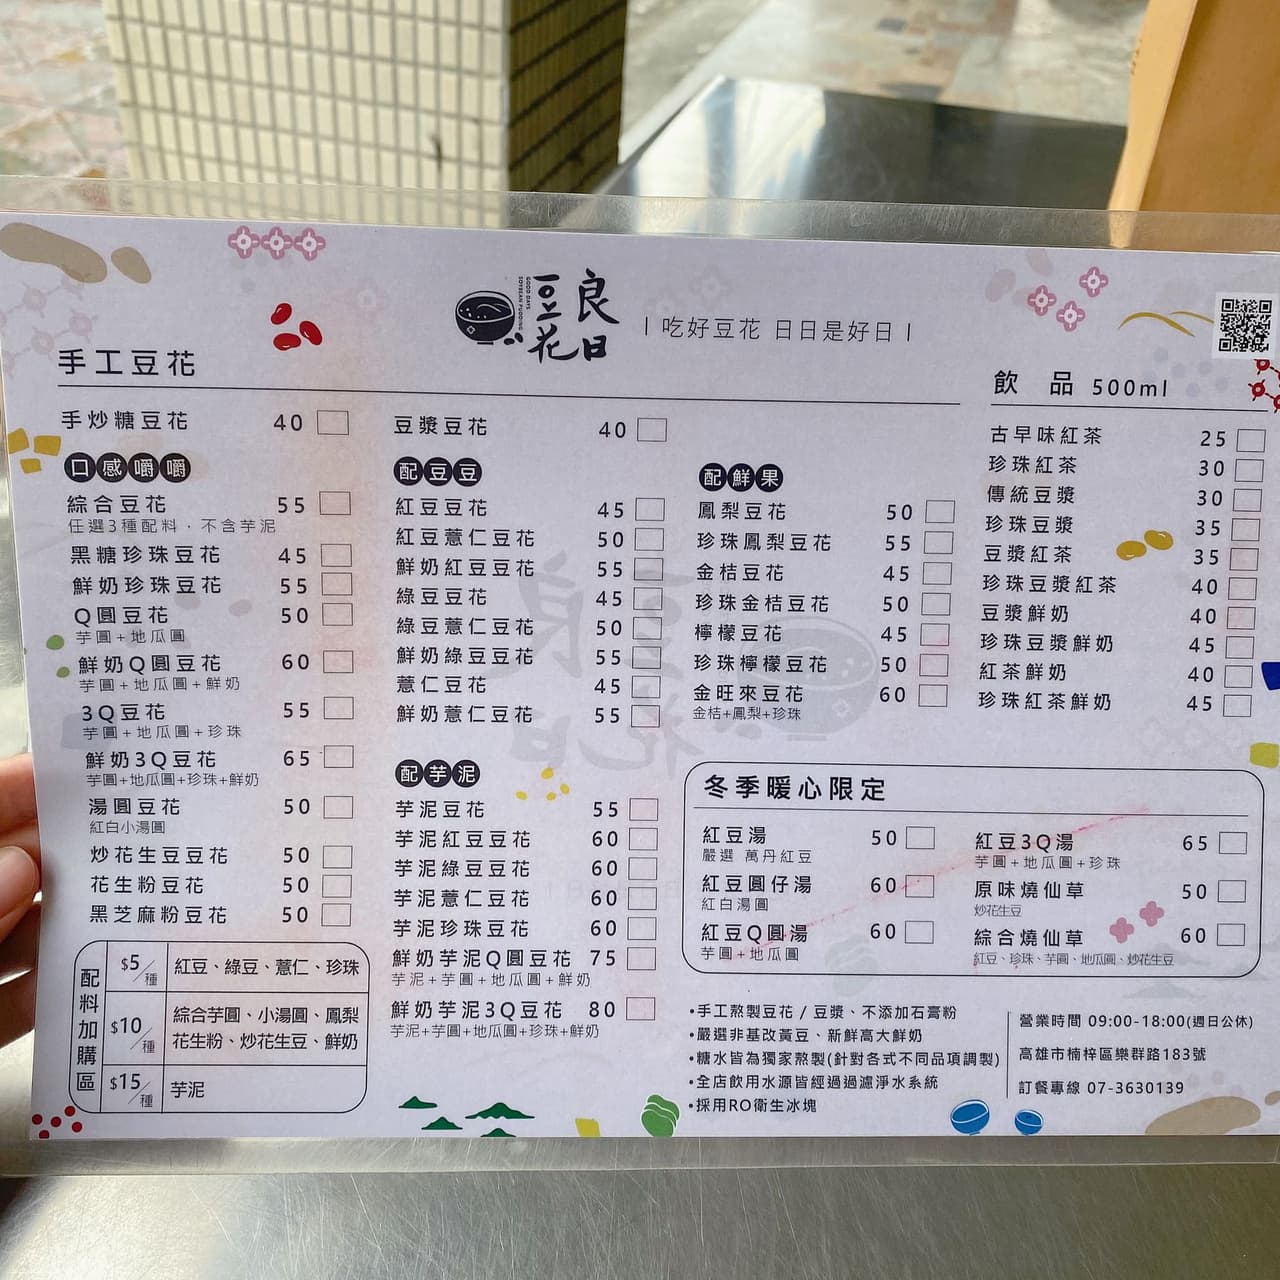 良日豆花
GOOD DAYS
SOYBEAN PUDDING
| 吃好豆花 日日是好日 |
手工豆花
手炒糖豆花 40
豆漿豆花 40
口感嚼嚼
綜合豆花 55
任選3種配料．不含芋泥
黑糖珍珠豆花 45
鮮奶珍珠豆花 55
Q圓豆花 50
芋圓+地瓜圓
鮮奶Q圓豆花 60
芋圓+地瓜圓+鮮奶
3Q豆花 55
芋圓+地瓜圓+珍珠
鮮奶3Q豆花 65
芋圓+地瓜圓+珍珠+鮮奶
湯圓豆花 50
紅白小湯圓
炒花生豆豆花 50
花生粉豆花 50
黑芝麻粉豆花 50
配料加購區
$5/種 紅豆、綠豆、薏仁、珍珠
$10/種 綜合芋圓、小湯圓、鳳梨
花生粉、炒花生豆、鮮奶
$15/種 芋泥
配豆豆
紅豆豆花 45
紅豆薏仁豆花 50
鮮奶紅豆豆花 55
綠豆豆花 45
綠豆薏仁豆花 50
鮮奶綠豆豆花 55
薏仁豆花 45
鮮奶薏仁豆花 55
配芋泥
芋泥豆花 55
芋泥紅豆豆花 60
芋泥綠豆豆花 60
芋泥薏仁豆花 60
芋泥珍珠豆花 60
鮮奶芋泥Q圓豆花 75
芋泥+芋圓+地瓜圓+鮮奶
鮮奶芋泥3Q豆花 80
芋泥+芋圓+地瓜圓+珍珠+鮮奶
配鮮果
鳳梨豆花 50
珍珠鳳梨豆花 55
金桔豆花 45
珍珠金桔豆花 50
檸檬豆花 45
珍珠檸檬豆花 50
金旺來豆花 60
金桔+鳳梨+珍珠
飲品 500ml
古早味紅茶 25
珍珠紅茶 30
傳統豆漿 30
珍珠豆漿 35
豆漿紅茶 35
珍珠豆漿紅茶 40
豆漿鮮奶 40
珍珠豆漿鮮奶 45
紅茶鮮奶 40
珍珠紅茶鮮奶 45
冬季暖心限定
紅豆湯 50
嚴選 萬丹紅豆
紅豆圓仔湯 60
紅白湯圓
紅豆Q圓湯 60
芋圓+地瓜圓
紅豆3Q湯 65
芋圓+地瓜圓+珍珠
原味燒仙草 50
炒花生豆
綜合燒仙草 60
紅豆、珍珠、芋圓、地瓜圓、炒花生豆
•手工熬製豆花 / 豆漿、不添加石膏粉
•嚴選非基改黃豆、新鮮高大鮮奶
•糖水皆為獨家熬製(針對各式不同品項調製)
•全店飲用水源皆經過過濾淨水系統
•採用RO衛生冰塊
營業時間 09:00-18:00(週日公休)
高雄市楠梓區樂群路183號
訂餐專線 07-3630139